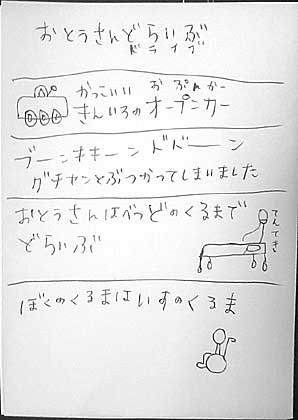 おとうさんどらいぶ
ドライブ
かっこいい おぷんかー
きんいろのオープンカー
ブーンキキーンドドーン
グチャンとぶつかってしまいました
おとうさんはべっどのくるまで
どらいぶ
てんてき
ぼくのくるまはいすのくるま